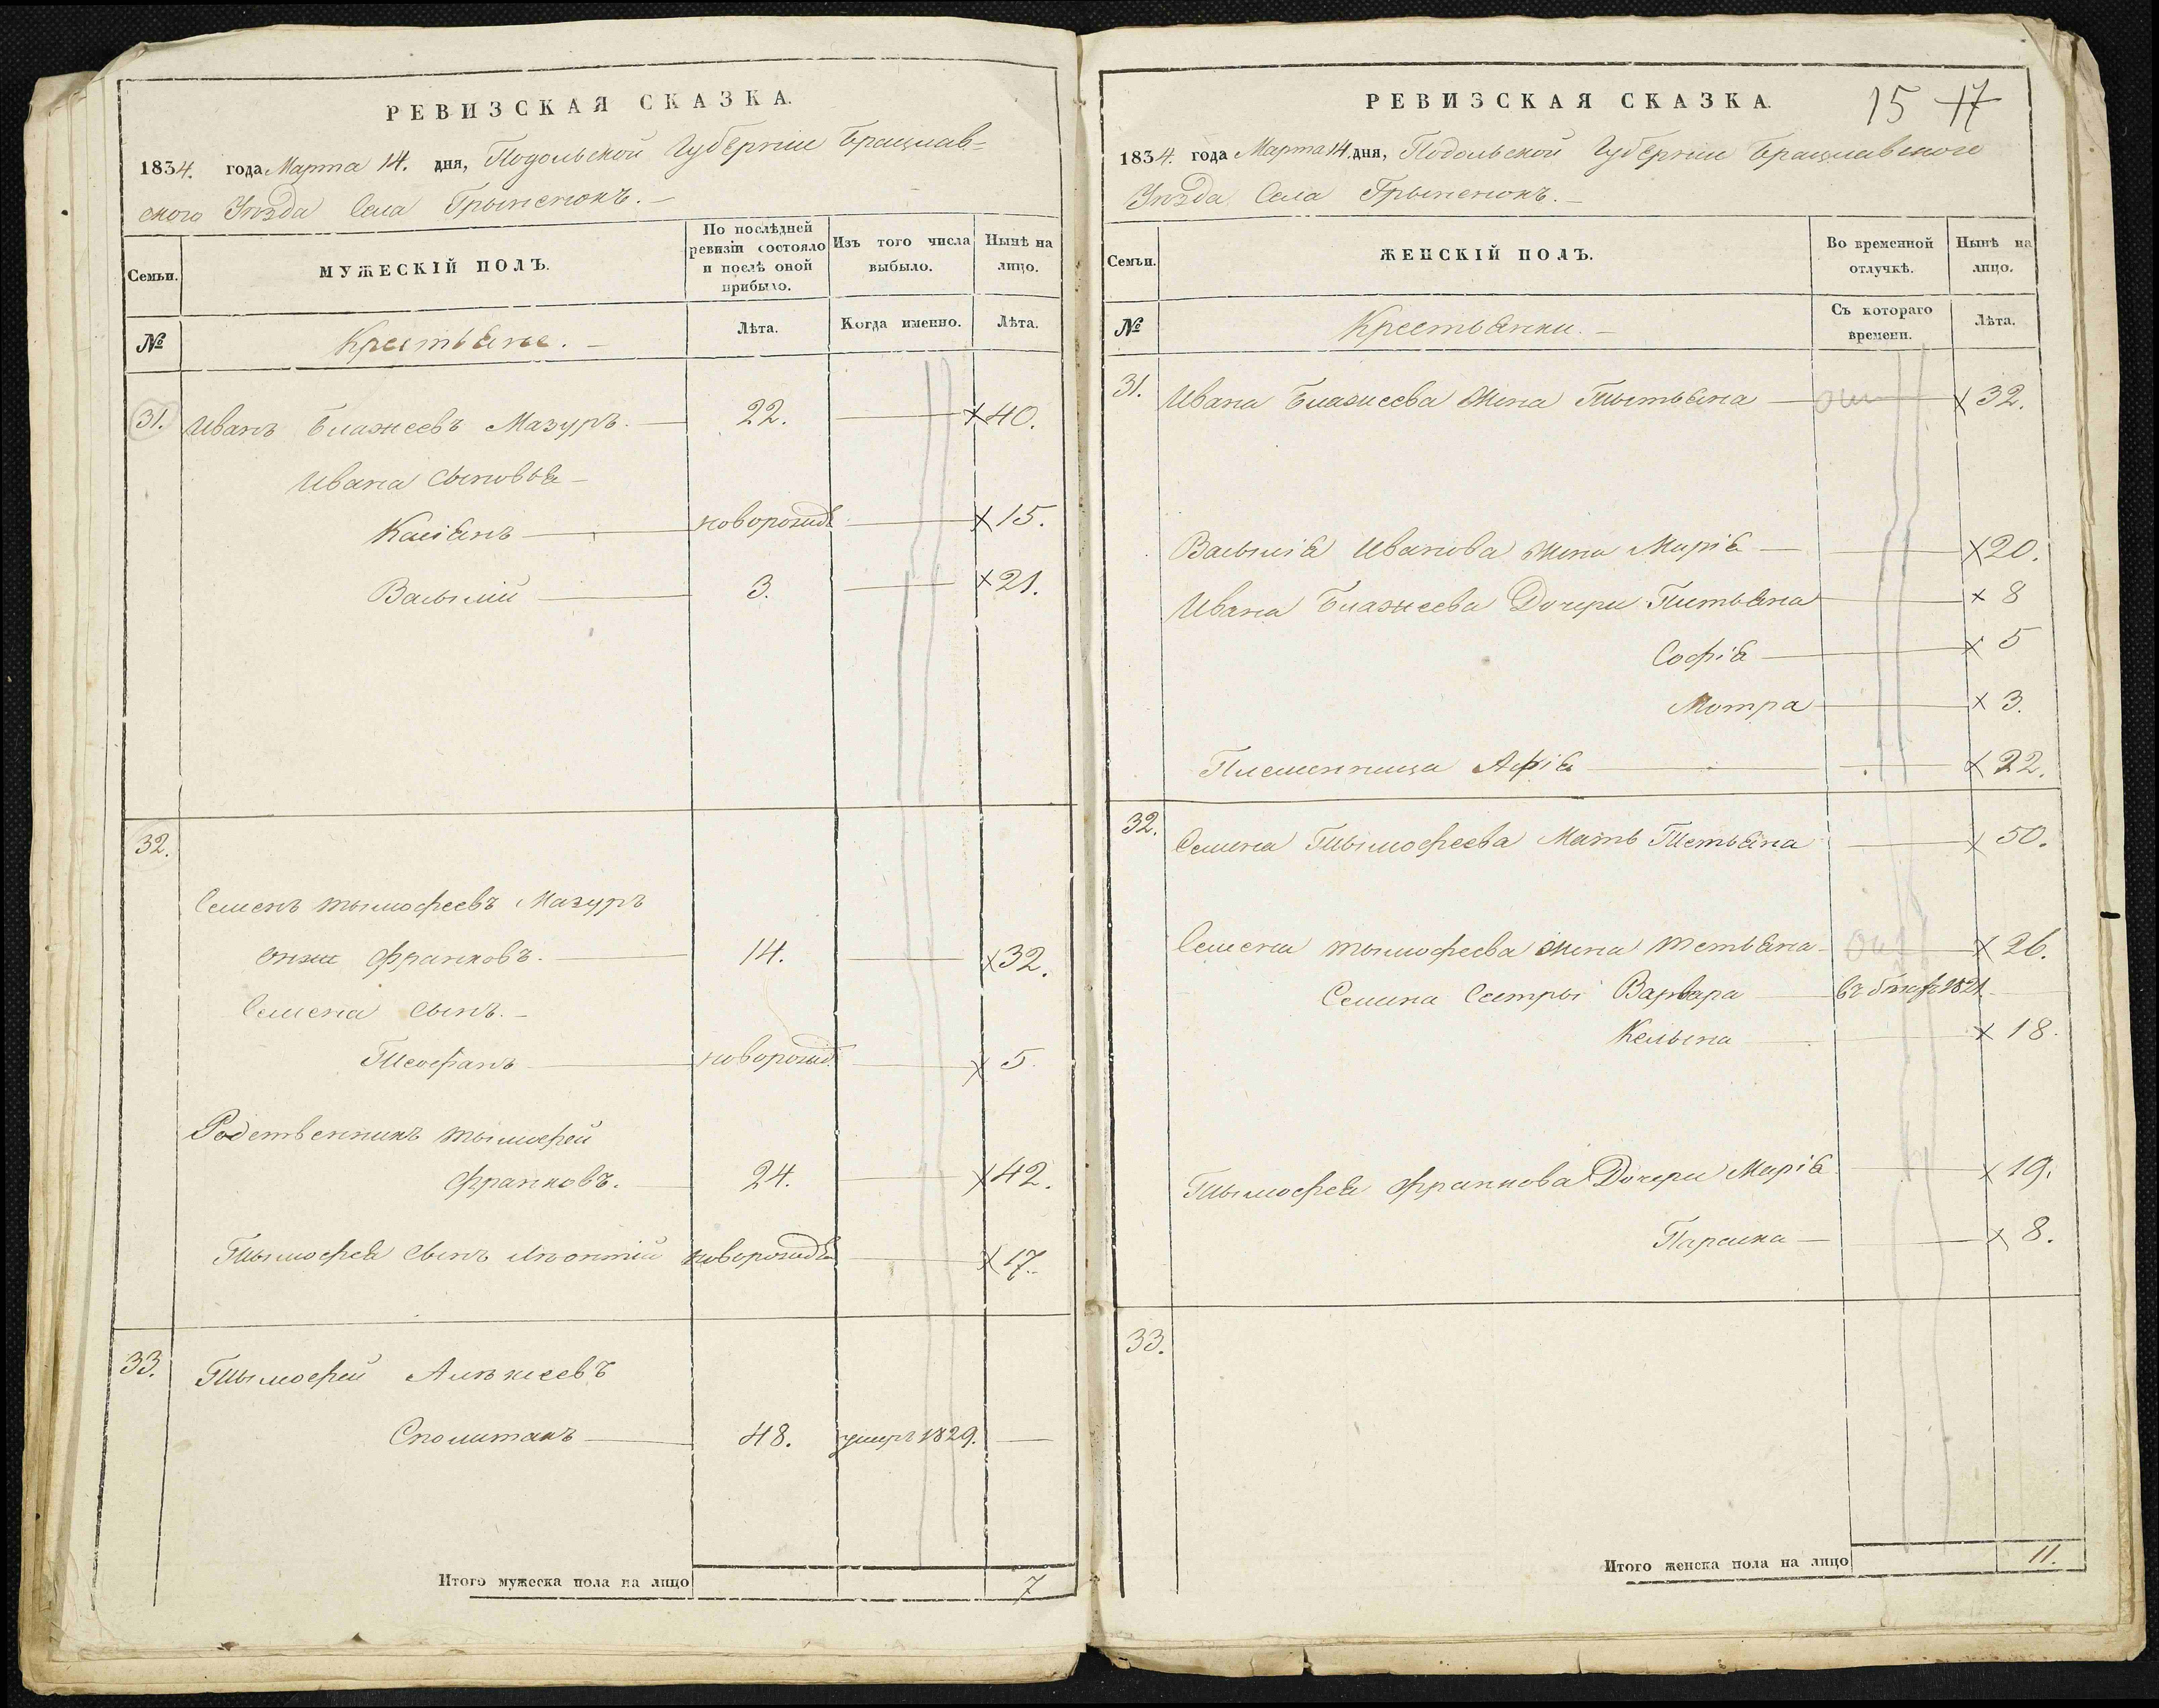 РЕВИЗСКАЯ СКАЗКА.
1834. года Марта 14. дня, Подольской Губернии Брацлав-
ского Уѣзда Села Грыненокъ. —
Семьи.
МУЖЕСКІЙ ПОЛЪ.
По послѣдней ревизіи состояло и послѣ оной прибыло.
Изъ того числа выбыло.
Нынѣ на лицо.
№
Крестьяне. —
Лѣта.
Когда именно.
Лѣта.
31. Иванъ Блажеевъ Мазуръ. — 22. — х 40.
Ивана Сыновья —
Касіянъ — новорожд — х 15.
Васылій — 3. — х 21.
32.
Семенъ тымофеевъ Мазуръ
онже Франковъ. — 14. — х 32.
Семена Сынъ. —
Теофанъ — новорожд. — х 5.
Родственникъ тымофей
Франковъ. — 24. — х 42.
Тымофея Сынъ новорожд — х 17.
33. Тымофей Алѣксеевъ
48. умеръ 1829. —
Итого мужеска пола на лицо 7
РЕВИЗСКАЯ СКАЗКА.
15 17
1834. года Марта 14. дня, Подольской Губернии Брацлавского
Уѣзда Села Грыненокъ. —
Семьи.
ЖЕНСКІЙ ПОЛЪ.
Во временной отлучкѣ.
Нынѣ на лицо.
№
Крестьянки. —
Съ котораго времени.
Лѣта.
31. Ивана Блажеева Жена Тытьяна — х 32.
Васылія Иванова жена Марія — х 20.
Ивана Блажеева Дочери Титьяна — х 8
Софія — х 5
Мотра — х 3.
Племенница — х 22.
32. Семена Тымофеева Мать Тетьяна — х 50.
Семена тымофеева жена тетьяна — х 26.
Семена Сестры Варвара — 1821 —
Келына — х 18.
Тымофея Франкова Дочери Марія — х 19.
Параска — х 8.
33.
Итого женска пола на лицо 11.